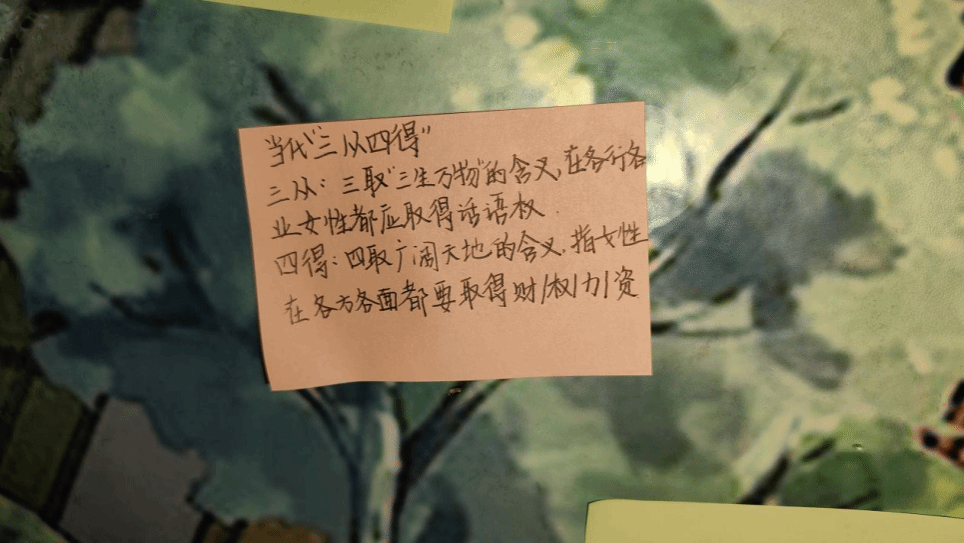 当代"三从四得"
三从：三取"三生万物"的含义，在各行各
业女性都应取得话语权.
四得：四取广阔天地的含义，指女性
在各方各面都要取得财/权/力/资